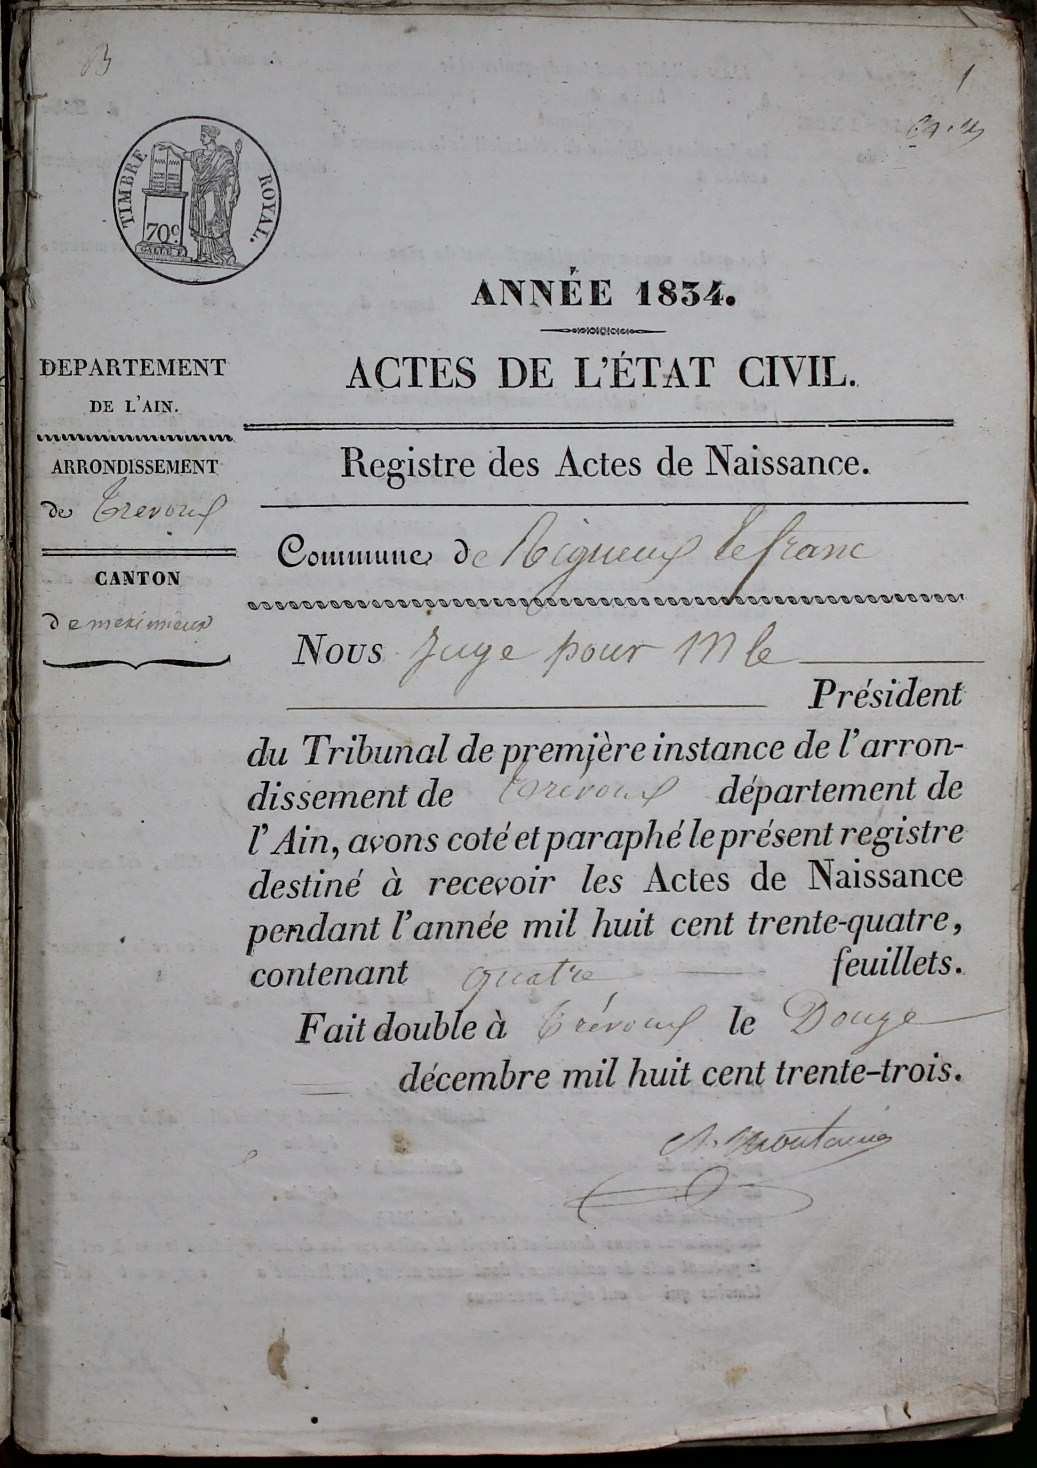 B
1
TIMBRE ROYAL.
70c
ANNÉE 1834.
ACTES DE L'ÉTAT CIVIL.
DEPARTEMENT
DE L'AIN.
ARRONDISSEMENT
de Trevoux
CANTON
De meximieux
Registre des Actes de Naissance.
Commune de Rigneux le franc
Nous Juge pour M le
Président
du Tribunal de première instance de l'arron-
dissement de Trévoux département de
l'Ain, avons coté et paraphé le présent registre
destiné à recevoir les Actes de Naissance
pendant l'année mil huit cent trente-quatre,
contenant quatre feuillets.
Fait double à Trévoux le Douze
décembre mil huit cent trente-trois.